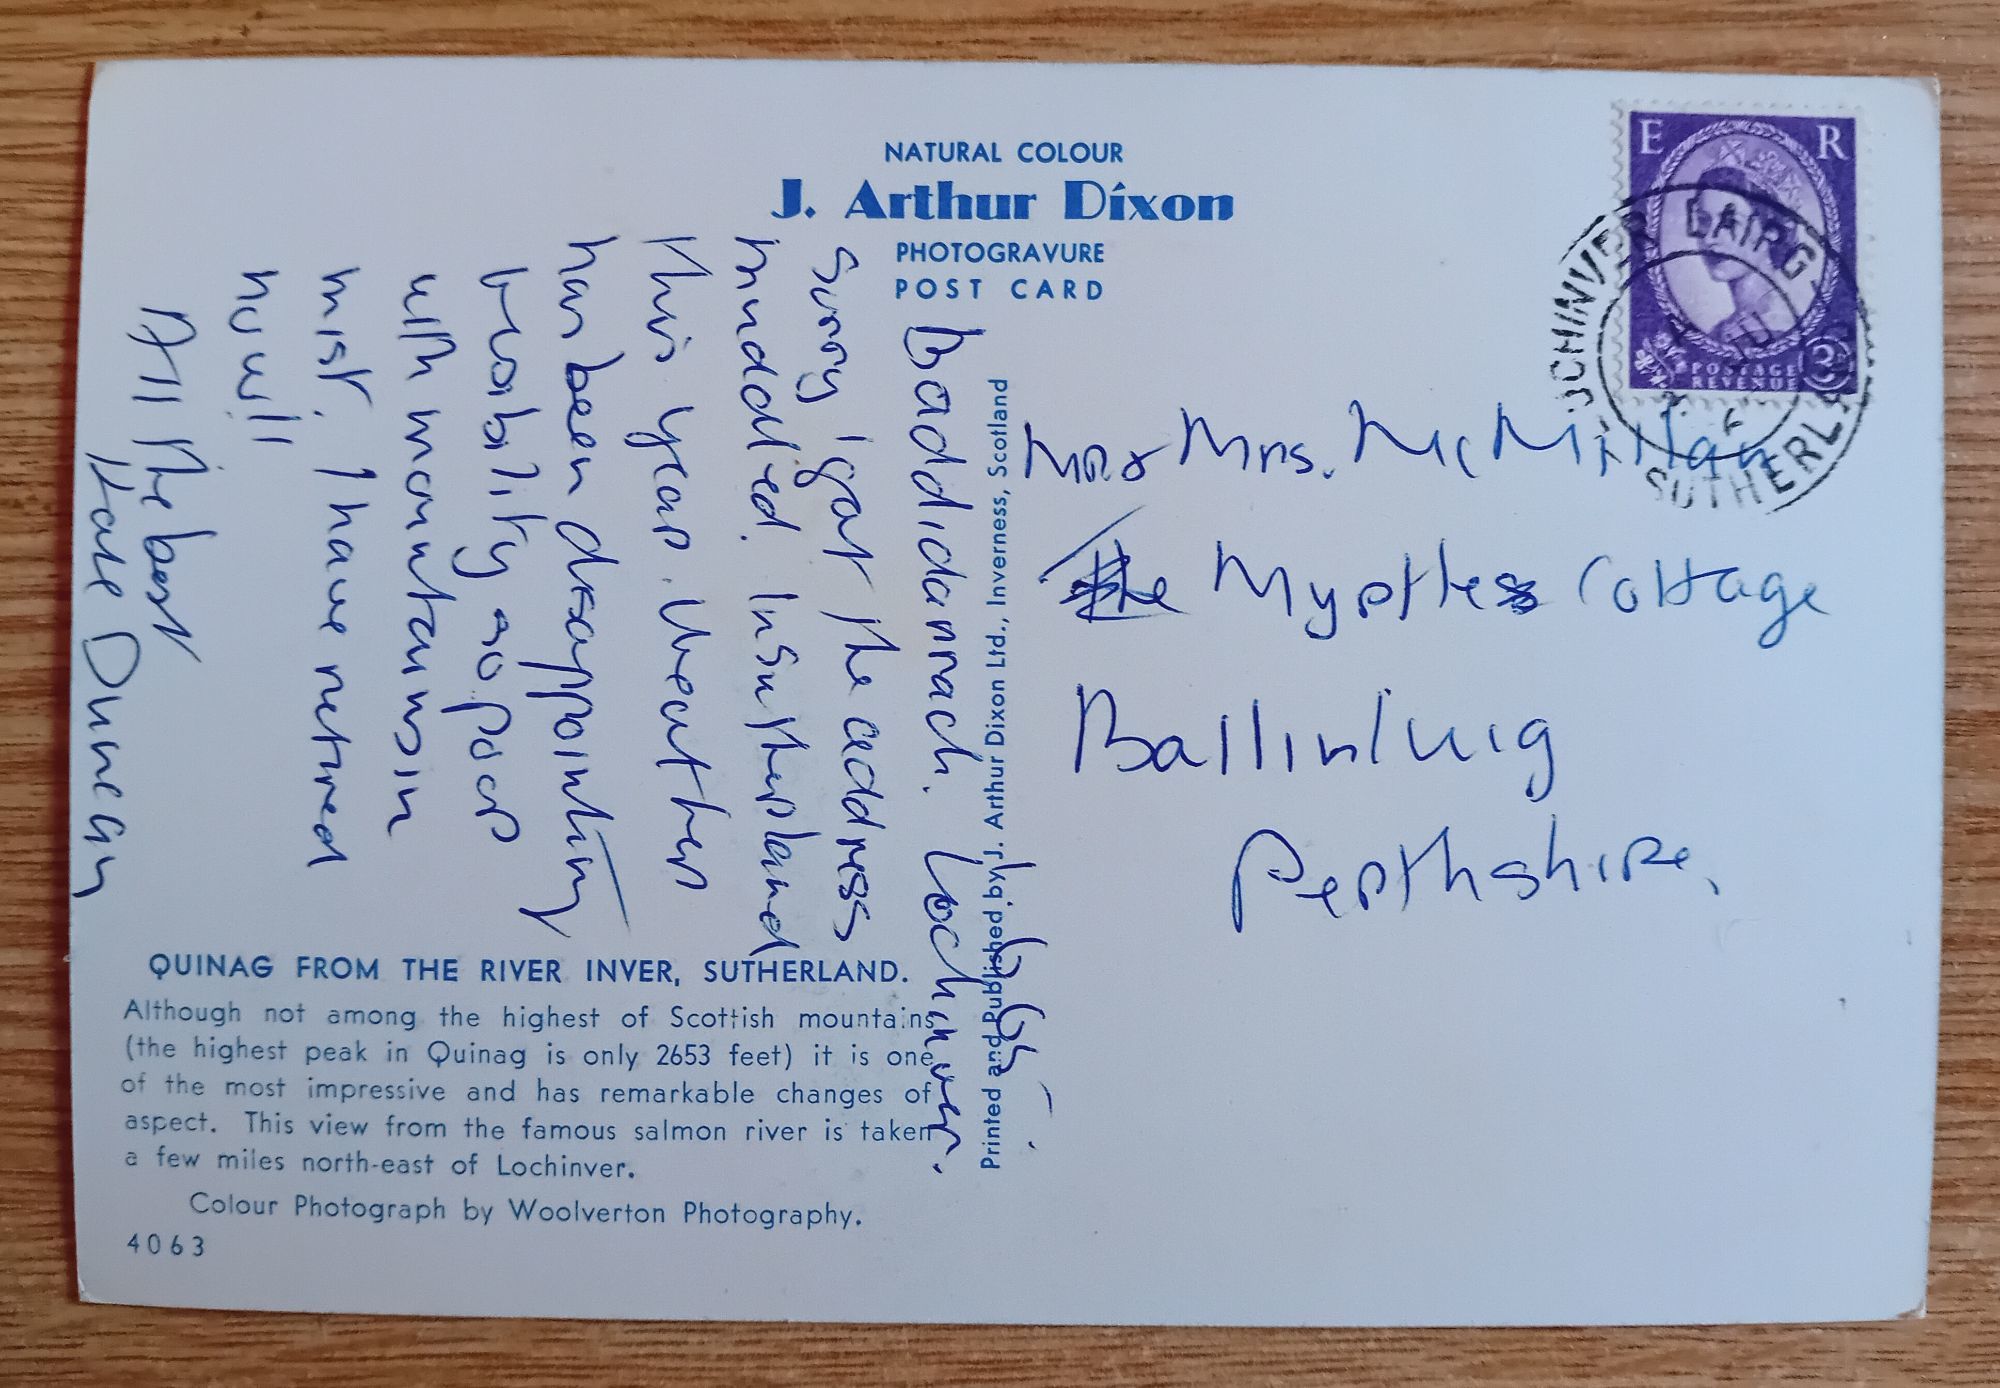 NATURAL COLOUR
J. Arthur Dixon
PHOTOGRAVURE
POST CARD
E R
POSTAGE
REVENUE
3D
LOCHINVER LAIRG
SUTHERL
Baddidarrach. Lochinver.
Sorry I got the address
muddled. In Sutherland
this year. Weather
has been disappointing
visibility so poor
with mountains in
mist. I have retired
now!!
All the best
Kate Duncan
Printed and Published by J. Arthur Dixon Ltd., Inverness, Scotland
Mr & Mrs. McMillan
Myrtle Cottage
Ballinluig
Perthshire.
QUINAG FROM THE RIVER INVER, SUTHERLAND.
Although not among the highest of Scottish mountains
(the highest peak in Quinag is only 2653 feet) it is one
of the most impressive and has remarkable changes of
aspect. This view from the famous salmon river is taken
a few miles north-east of Lochinver.
Colour Photograph by Woolverton Photography.
4063